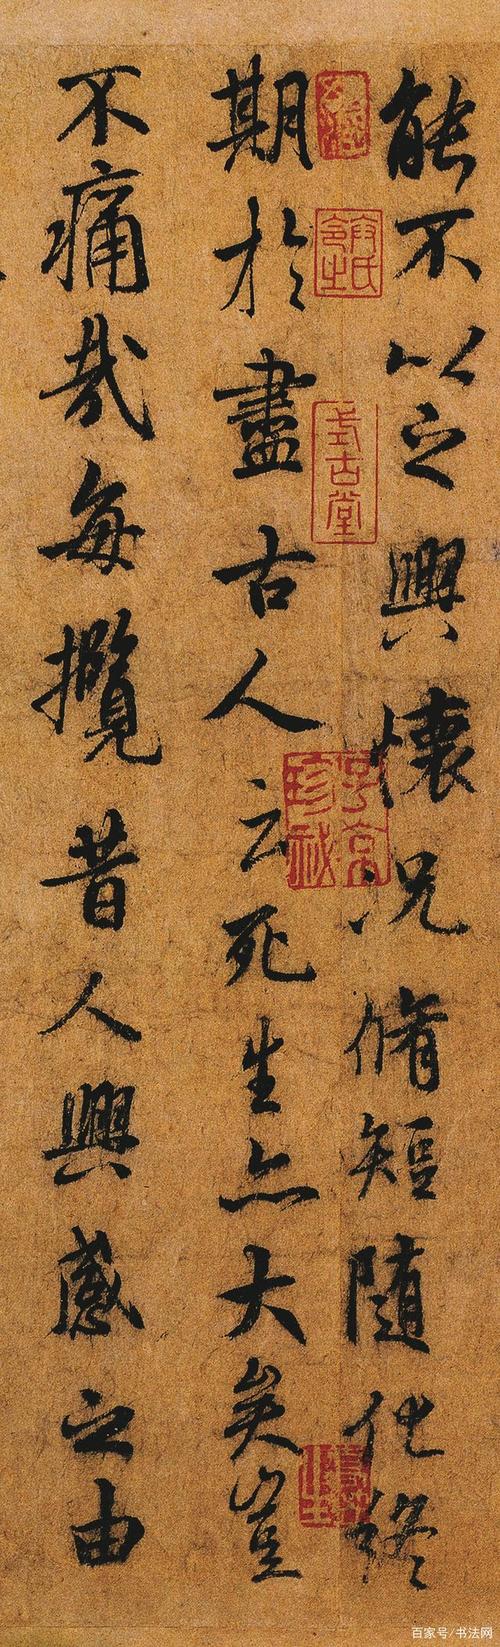 能不以之興懷況脩短随化終
期於盡古人云死生亦大矣豈
不痛哉每攬昔人興感之由
式古堂
子京珍祕
百家号/书法网